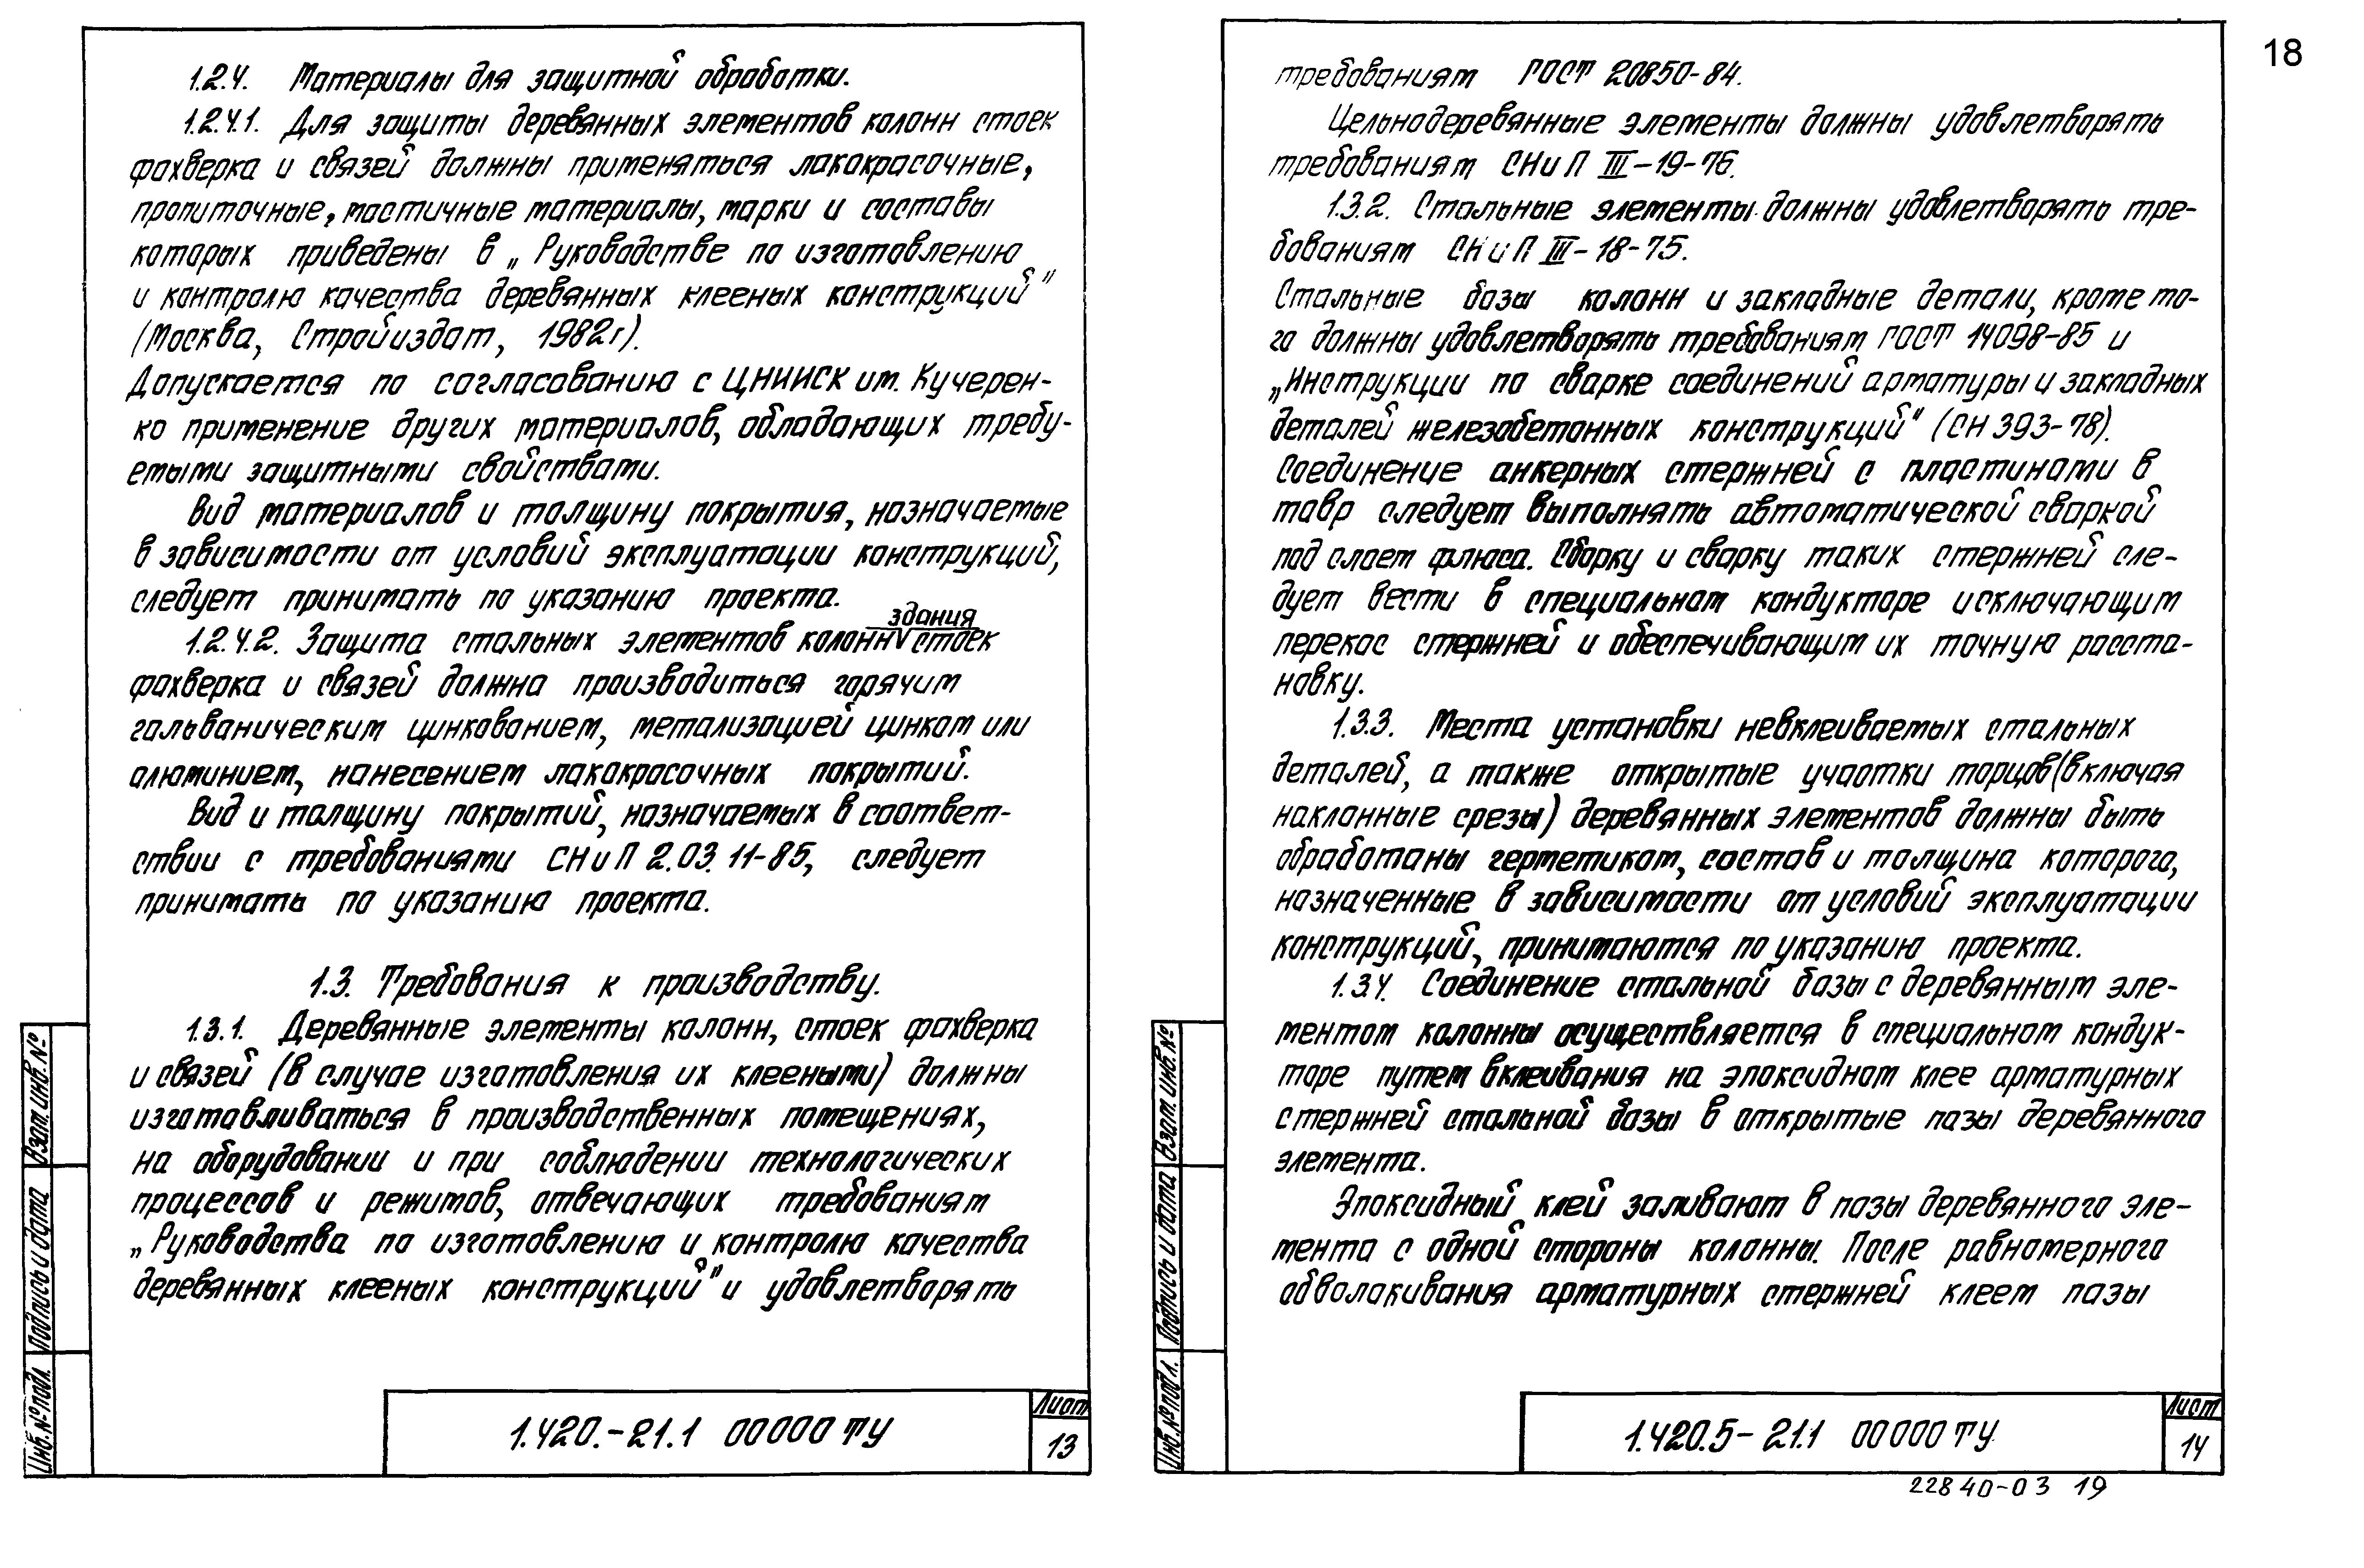 18
1.2.4. Материалы для защитной обработки.
1.2.4.1. Для защиты деревянных элементов колонн стоек
фахверка и связей должны применяться лакокрасочные,
пропиточные, мастичные материалы, марки и составы
которых приведены в „Руководстве по изготовлению
и контролю качества деревянных клееных конструкций"
(Москва, Стройиздат, 1982г).
Допускается по согласованию с ЦНИИСК им. Кучерен-
ко применение других материалов, обладающих требу-
емыми защитными свойствами.
Вид материалов и толщину покрытия, назначаемые
в зависимости от условий эксплуатации конструкций,
следует принимать по указанию проекта.
здания
1.2.4.2. Защита стальных элементов колонн стоек
фахверка и связей должна производиться горячим
гальваническим цинкованием, метализацией цинком или
алюминием, нанесением лакокрасочных покрытий.
Вид и толщину покрытий, назначаемых в соответ-
ствии с требованиями СНиП 2.03.11-85, следует
принимать по указанию проекта.
1.3. Требования к производству.
1.3.1. Деревянные элементы колонн, стоек фахверка
и связей (в случае изготовления их клееными) должны
изготавливаться в производственных помещениях,
на оборудовании и при соблюдении технологических
процессов и режимов, отвечающих требованиям
„Руководства по изготовлению и контролю качества
деревянных клееных конструкций" и удовлетворять
Взам. инв. №
Подпись и дата
Инв. № подл.
1.420.-21.1 00000 ТУ
Лист
13
требованиям ГОСТ 20850-84.
Цельнодеревянные элементы должны удовлетворять
требованиям СНиП III-19-76.
1.3.2. Стальные элементы должны удовлетворять тре-
бованиям СНиП III-18-75.
Стальные базы колонн и закладные детали, кроме то-
го должны удовлетворять требованиям ГОСТ 14098-85 и
„Инструкции по сварке соединений арматуры и закладных
деталей железобетонных конструкций" (СН 393-78).
Соединение анкерных стержней с пластинами в
тавр следует выполнять автоматической сваркой
под слоем флюса. Сборку и сварку таких стержней сле-
дует вести в специальном кондукторе исключающим
перекос стержней и обеспечивающим их точную расста-
новку.
1.3.3. Места установки невклеиваемых стальных
деталей, а также открытые участки торцов (включая
наклонные срезы) деревянных элементов должны быть
обработаны герметиком, состав и толщина которого,
назначенные в зависимости от условий эксплуатации
конструкций, принимаются по указанию проекта.
1.3.4. Соединение стальной базы с деревянным эле-
ментом колонны осуществляется в специальном кондук-
торе путем вклеивания на эпоксидном клее арматурных
стержней стальной базы в открытые пазы деревянного
элемента.
Эпоксидный клей заливают в пазы деревянного эле-
мента с одной стороны колонны. После равномерного
обволакивания арматурных стержней клеем пазы
Взам. инв. №
Подпись и дата
Инв. № подл.
1.420.5-21.1 00000 ТУ
Лист
14
22840-03 19